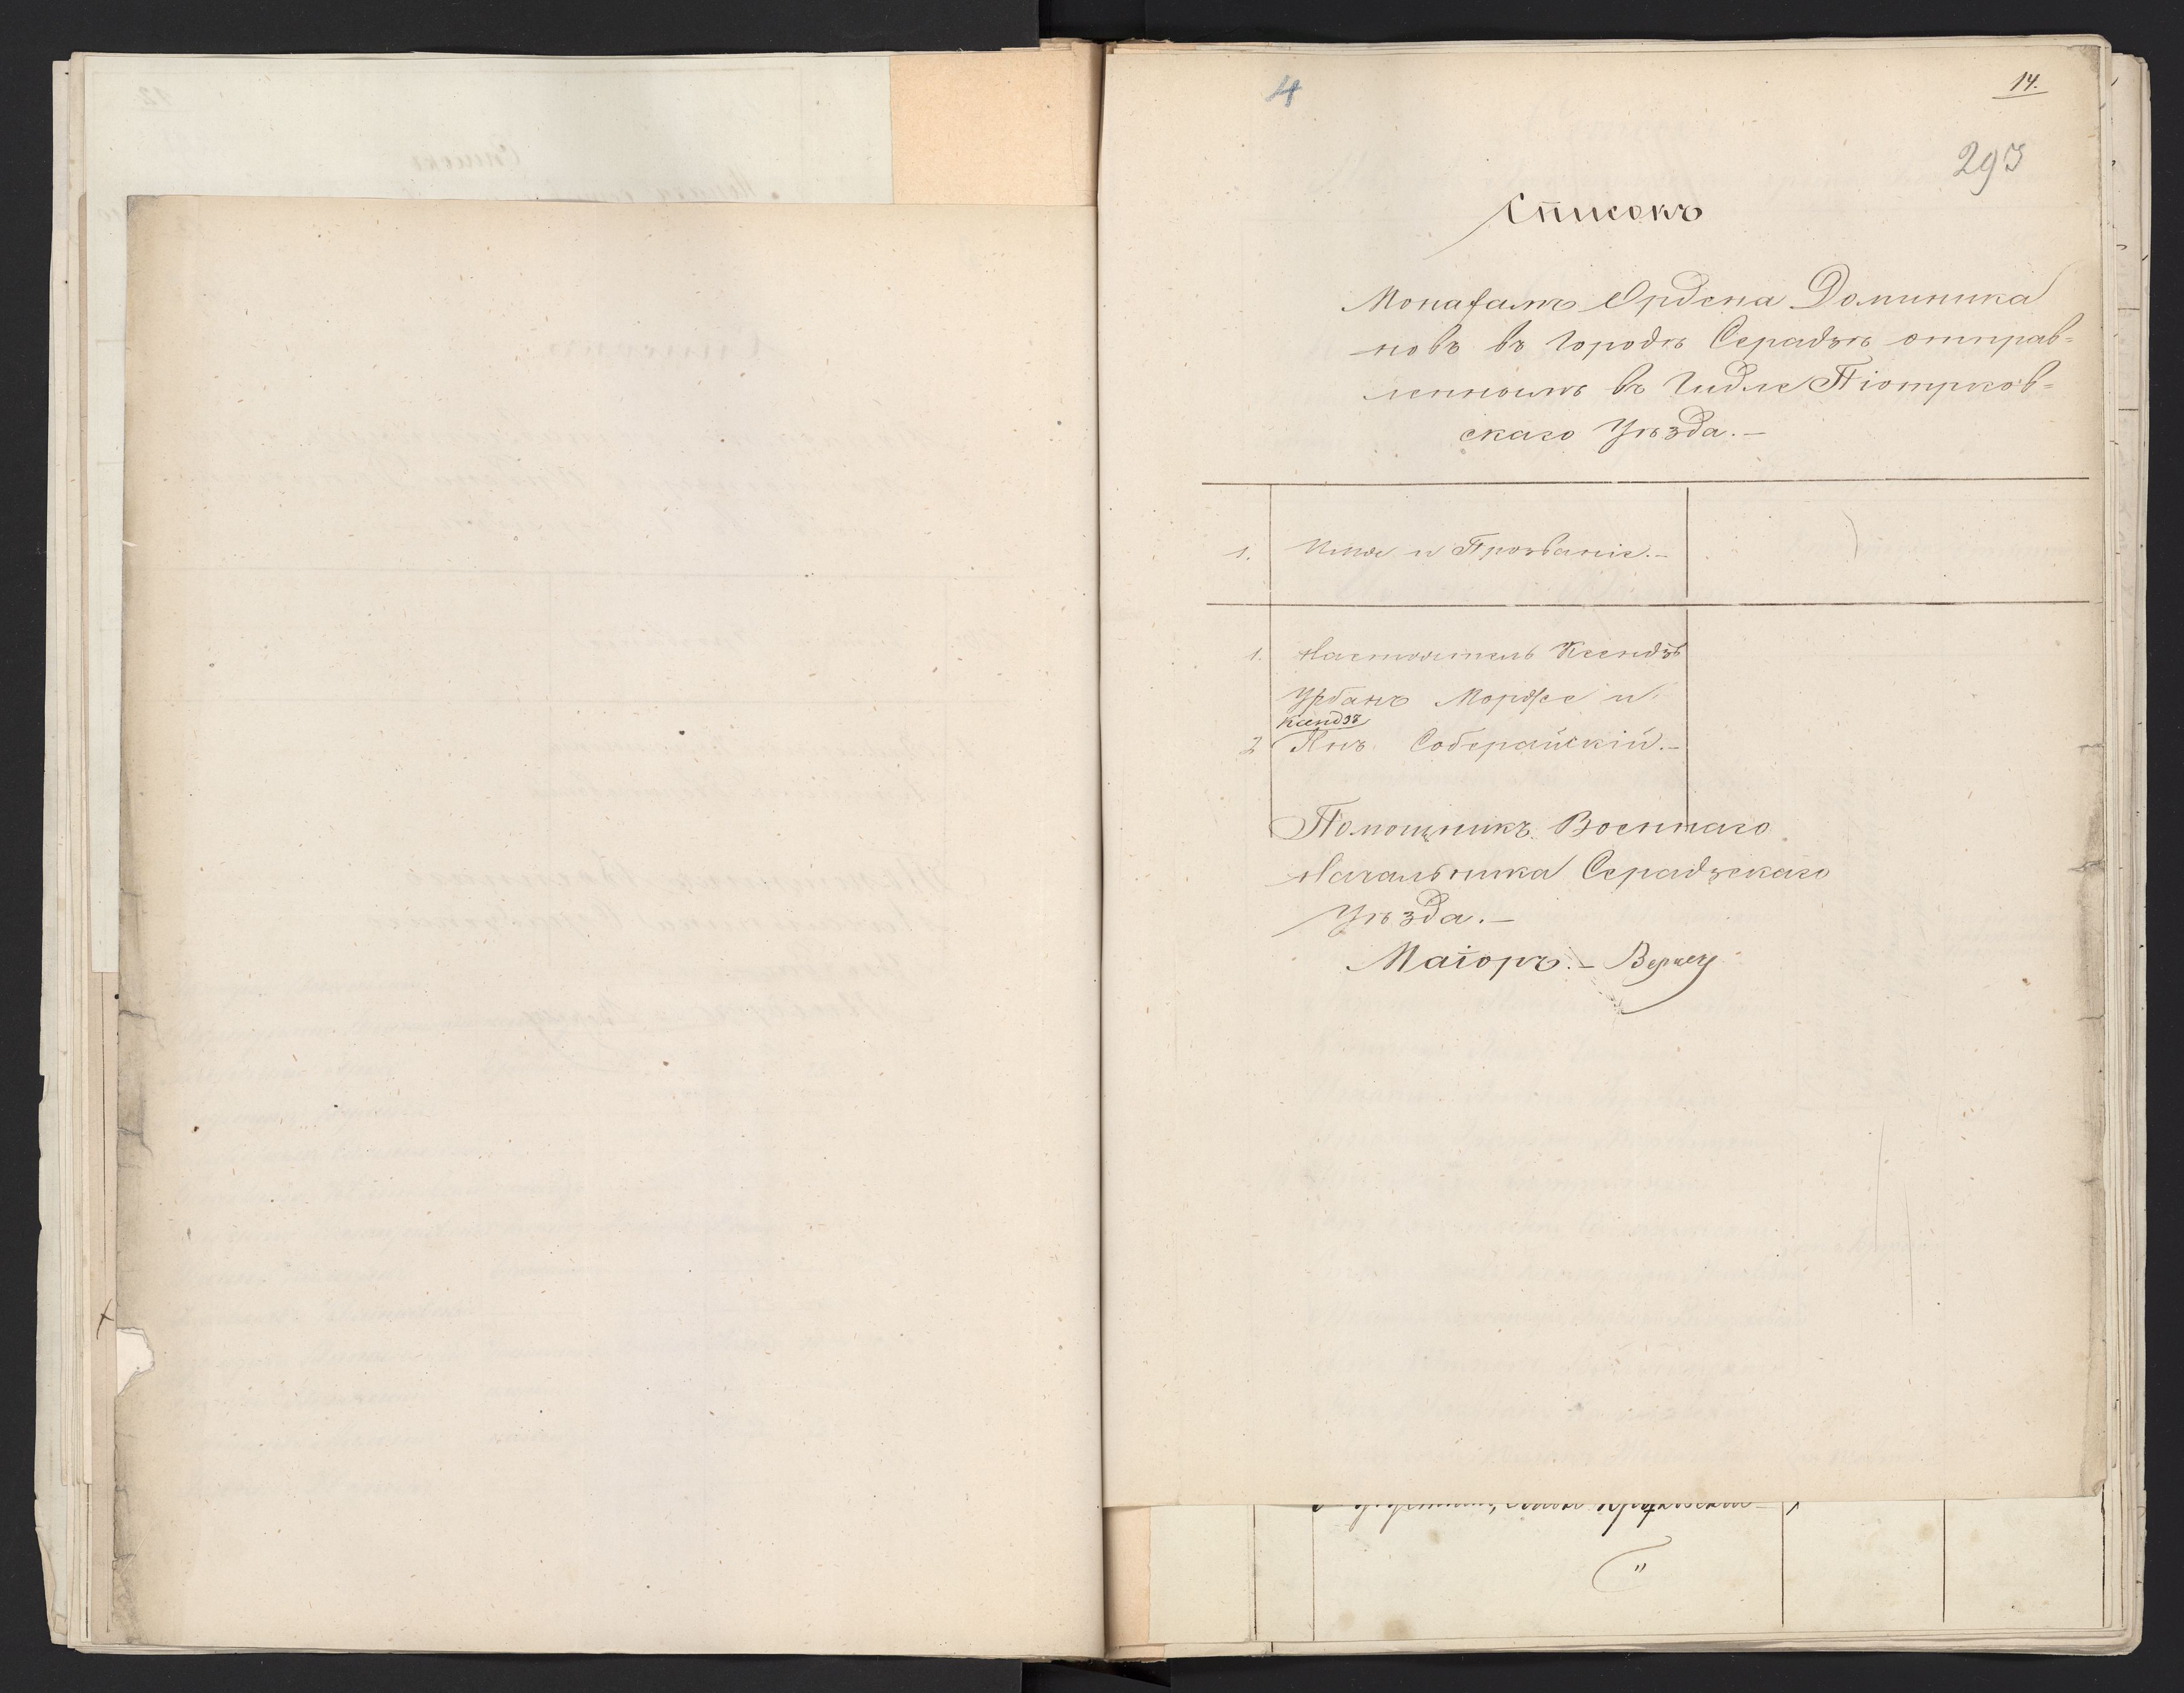 4
14.
293
Списокъ
Монахамъ Ордена Доминика
новъ въ Городѣ Серадзѣ отправ=
леннымъ въ Гидле Піотрков=
скаго Уѣзда.—
1. Имя и Прозваніе.—
1. Настоятель Ксендзъ
Урбанъ и
Ксендзъ
2 Янъ Соберайскій.—
Помощникъ Военнаго
Начальника Серадзскаго
Уѣзда.—
Маіоръ.—